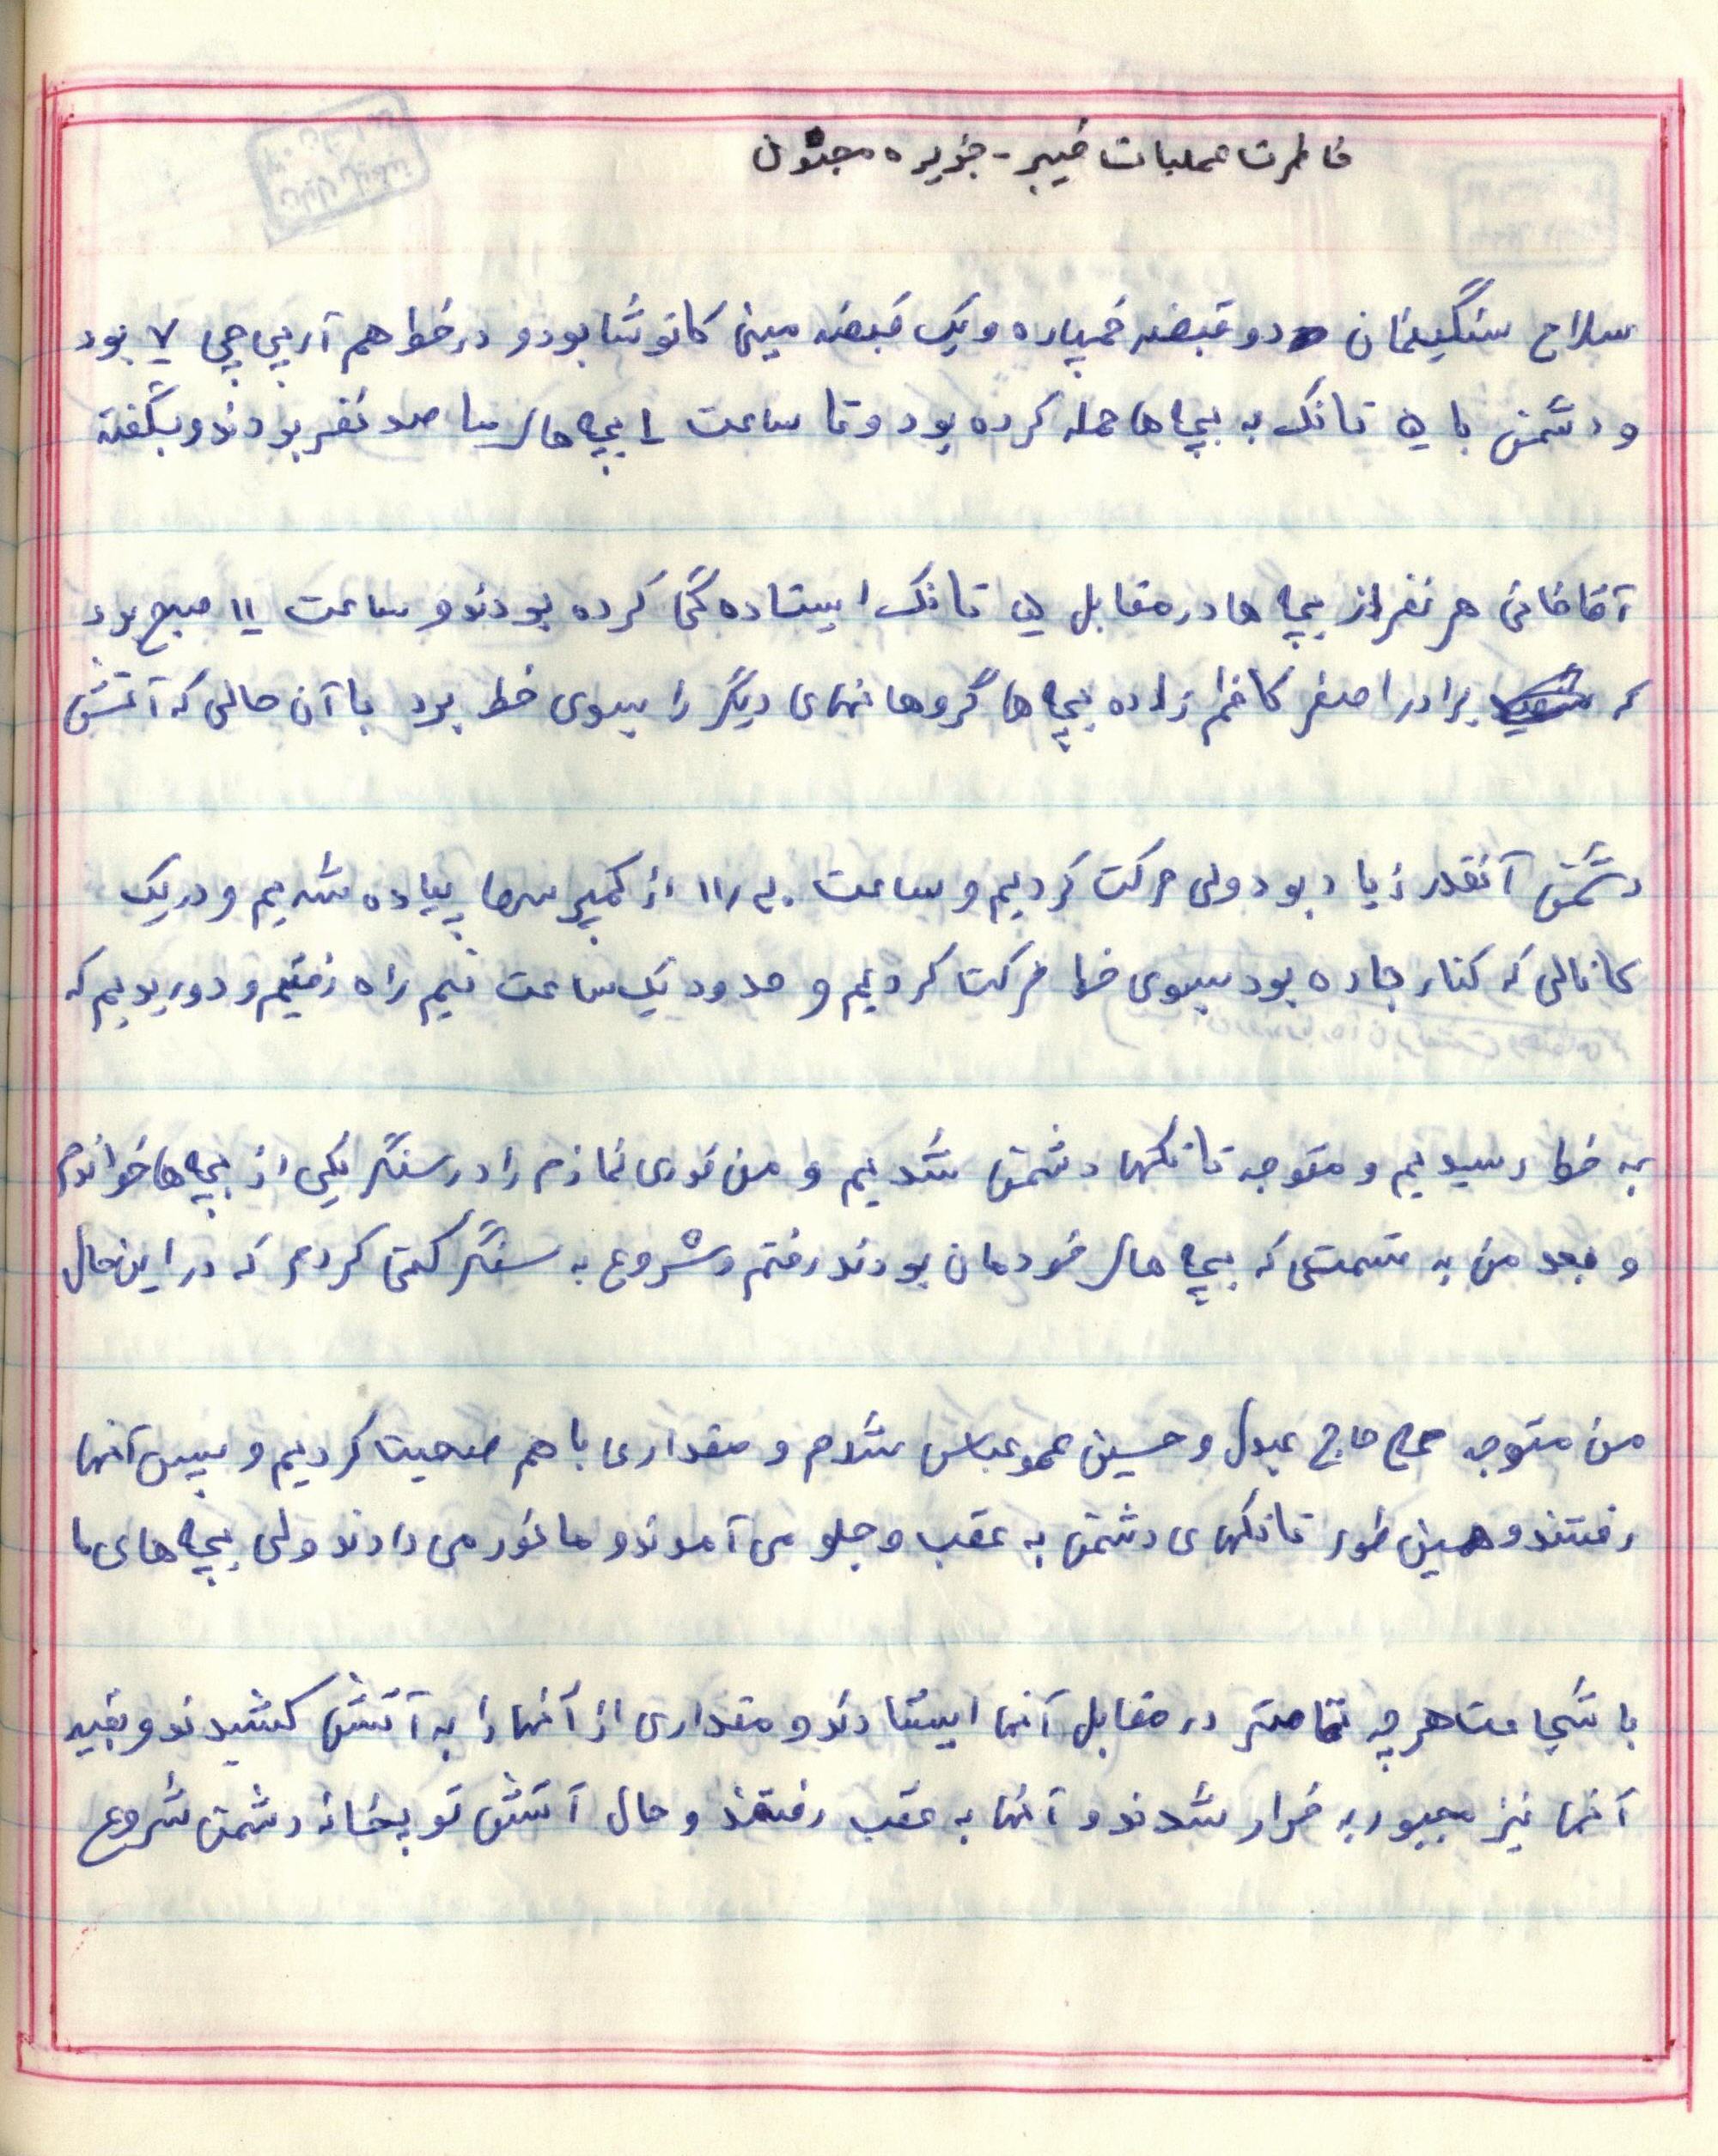 خاطرات عملیات خیبر - جزیره مجنون
سلاح سنگینمان دو قبضه خمپاره و یک قبضه مینی کاتوشا بود و در خط هم آرپی چی ۷ بود
و دشمن با ۵ تانک به بچه ها حمله کرده بود و تا ساعت بچه های ما صد نفر بودند و بگفته
آقاخانی هر نفر از بچه ها در مقابل ۵ تانک ایستاده گی کرده بودند و ساعت ۱۱ صبح بود
که برادر اصغر کاظم زاده بچه ها گروهانهای دیگر را بسوی خط برد با آن حالی که آتش
دشمن آنقدر زیاد بود ولی حرکت کردیم و ساعت ۱۱/۲۰ از کمپرسیها پیاده شدیم و در یک
کانالی که کنار جاده بود بسوی خط حرکت کردیم و حدود یک ساعت نیم راه رفتیم و دور بودیم که
به خط رسیدیم و متوجه تانکها دشمن شدیم و من فوری نمازم را در سنگر یکی از بچه ها خواندم
و بعد من به قسمتی که بچه های خودمان بودند رفتم و شروع به سنگر کنی کردم که در این حال
من متوجه حاج عبدل و حسین عمو عباس شدم و مقداری با هم صحبت کردیم و سپس آنها
رفتند و همین طور تانکهای دشمن به عقب و جلو می آمدند و مانور می دادند ولی بچه های ما
با شجاعت هر چه تمامتر در مقابل آنها ایستادند و مقداری از آنها را به آتش کشیدند و بقیه
آنها نیز مجبور به فرار شدند و آنها به عقب رفتند و حال آتش توپخانه دشمن شروع